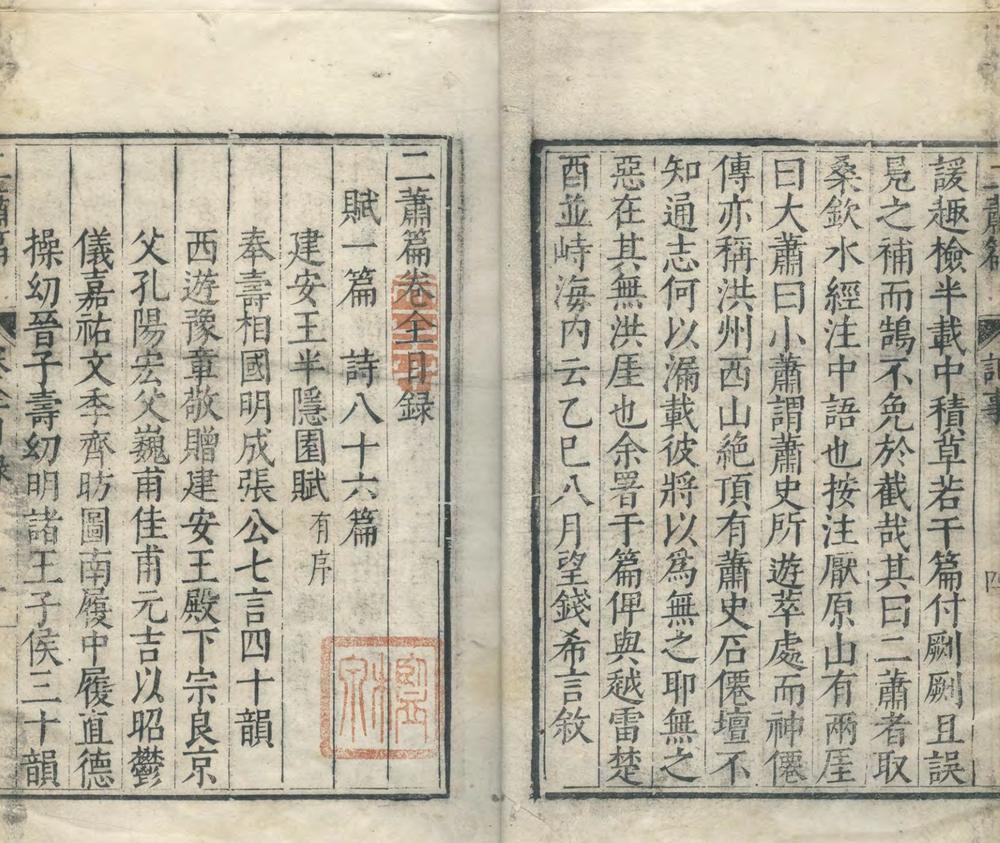 諼趣檢半載中積草若干篇付劂劂且誤
鳬之補而鵠不免於截哉其曰二蕭者取
桑欽水經注中語也按注厭原山有兩厓
曰大蕭曰小蕭謂蕭史所遊萃處而神僊
傳亦稱洪州西山絶頂有蕭史石僊壇不
知通志何以漏載彼將以爲無之耶無之
惡在其無洪厓也余署于篇俾與越雷楚
酉並峙海内云乙巳八月望錢希言敘
二蕭篇卷全目録
賦一篇 詩八十六篇
建安王半隱園賦有序
奉壽相國明成張公七言四十韻
西遊豫章敬贈建安王殿下宗良京
父孔陽宏父巍甫佳甫元吉以昭鬱
儀嘉祐文季齊昉圖南履中履直德
操幻晉子壽幻明諸王子侯三十韻